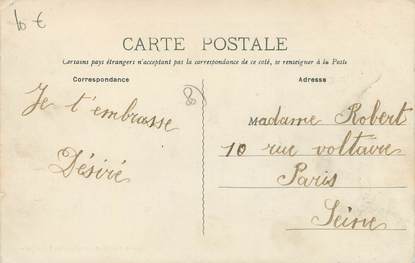 10 €
CARTE POSTALE
Certains pays étrangers n'acceptant pas la correspondance de ce coté, se renseigner à la Poste
Correspondance
Adresse
Je t'embrasse
Désiré
80
Madame Robert
10 rue voltaire
Paris
Seine